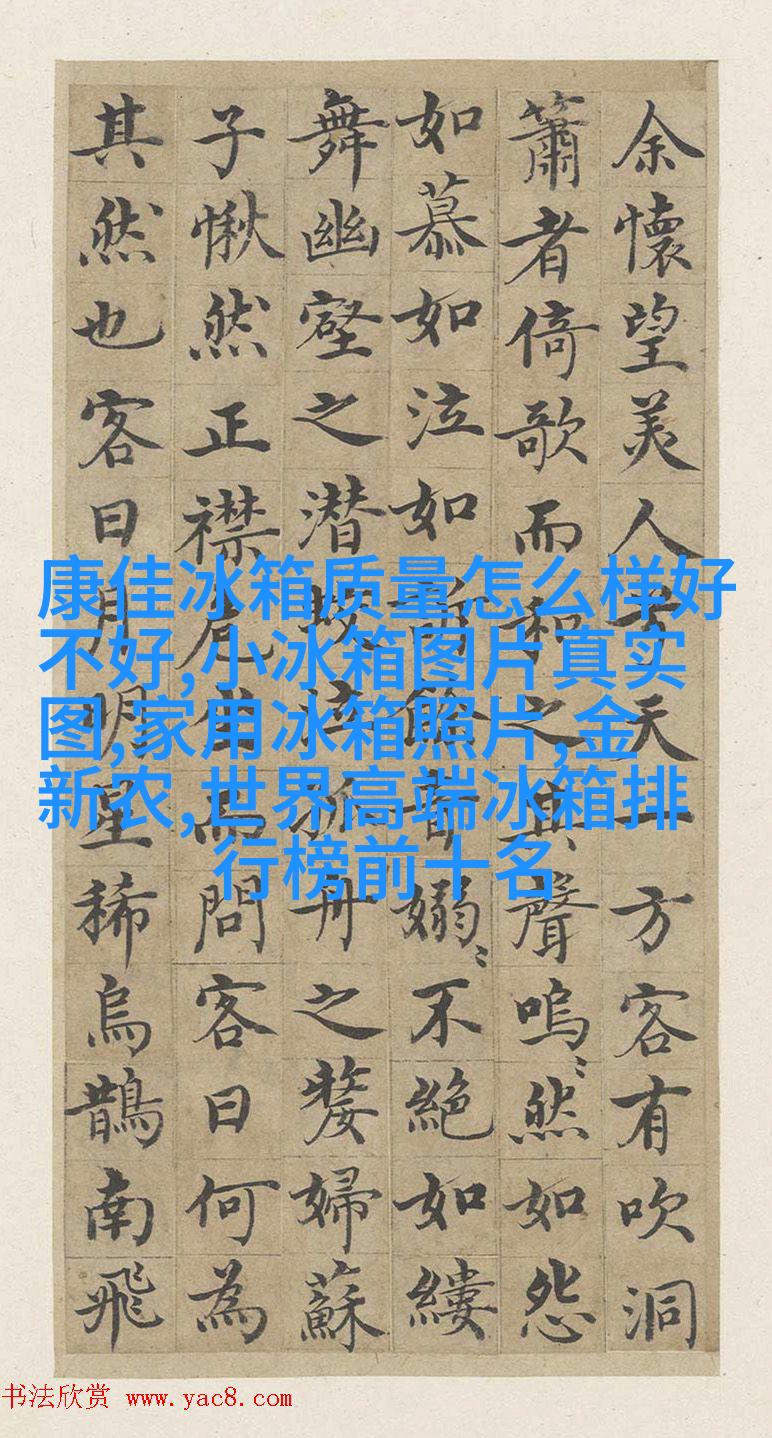 余懷望美人兮天一方客有吹洞
簫者倚歌而和之其聲嗚〻然如怨
如慕如泣如訴餘音嫋〻不絕如縷
舞幽壑之潛蛟泣孤舟之嫠婦蘇
子愀然正襟危坐而問客曰何為
其然也客曰月明星稀烏鵲南飛
康佳冰箱质量怎么样好
不好,小冰箱图片真实
图,家用冰箱照片,金
新农,世界高端冰箱排
行榜前十名
书法欣赏 www.yac8.com